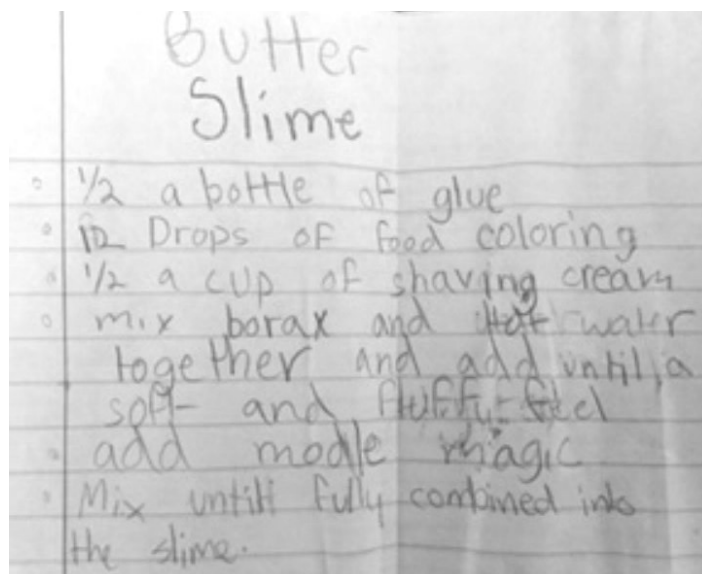 Butter
Slime
1/2 a bottle of glue
12 Drops of food coloring
1/2 a cup of shaving cream
mix borax and hot water
together and add until a
soft and fluffy feel
add modle magic
Mix untill fully combined into
the slime.